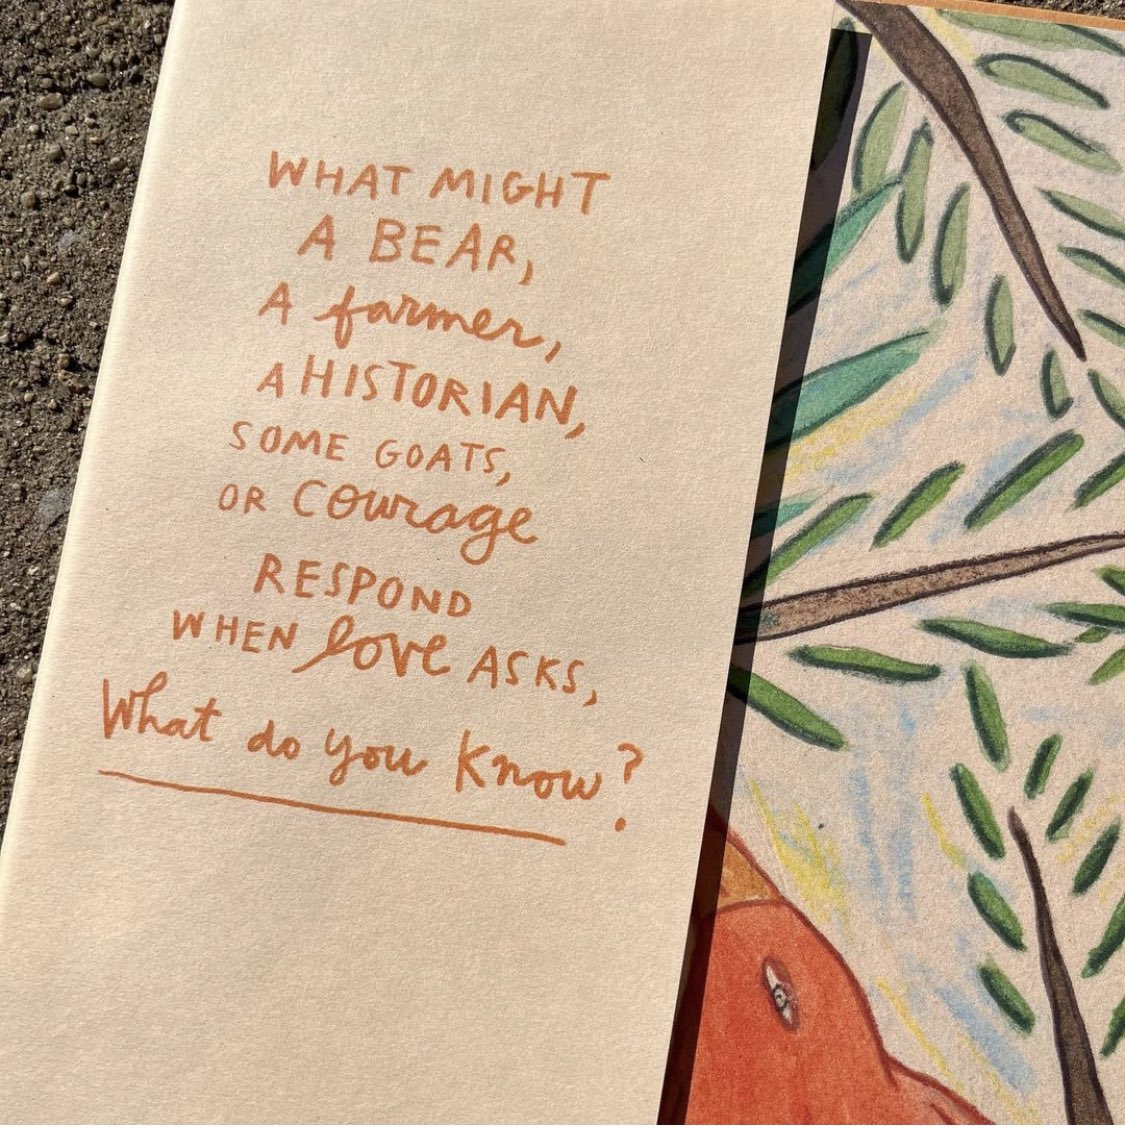 WHAT MIGHT
A BEAR,
A farmer,
A HISTORIAN,
SOME GOATS,
OR Courage
RESPOND
WHEN love ASKS,
What do you know?